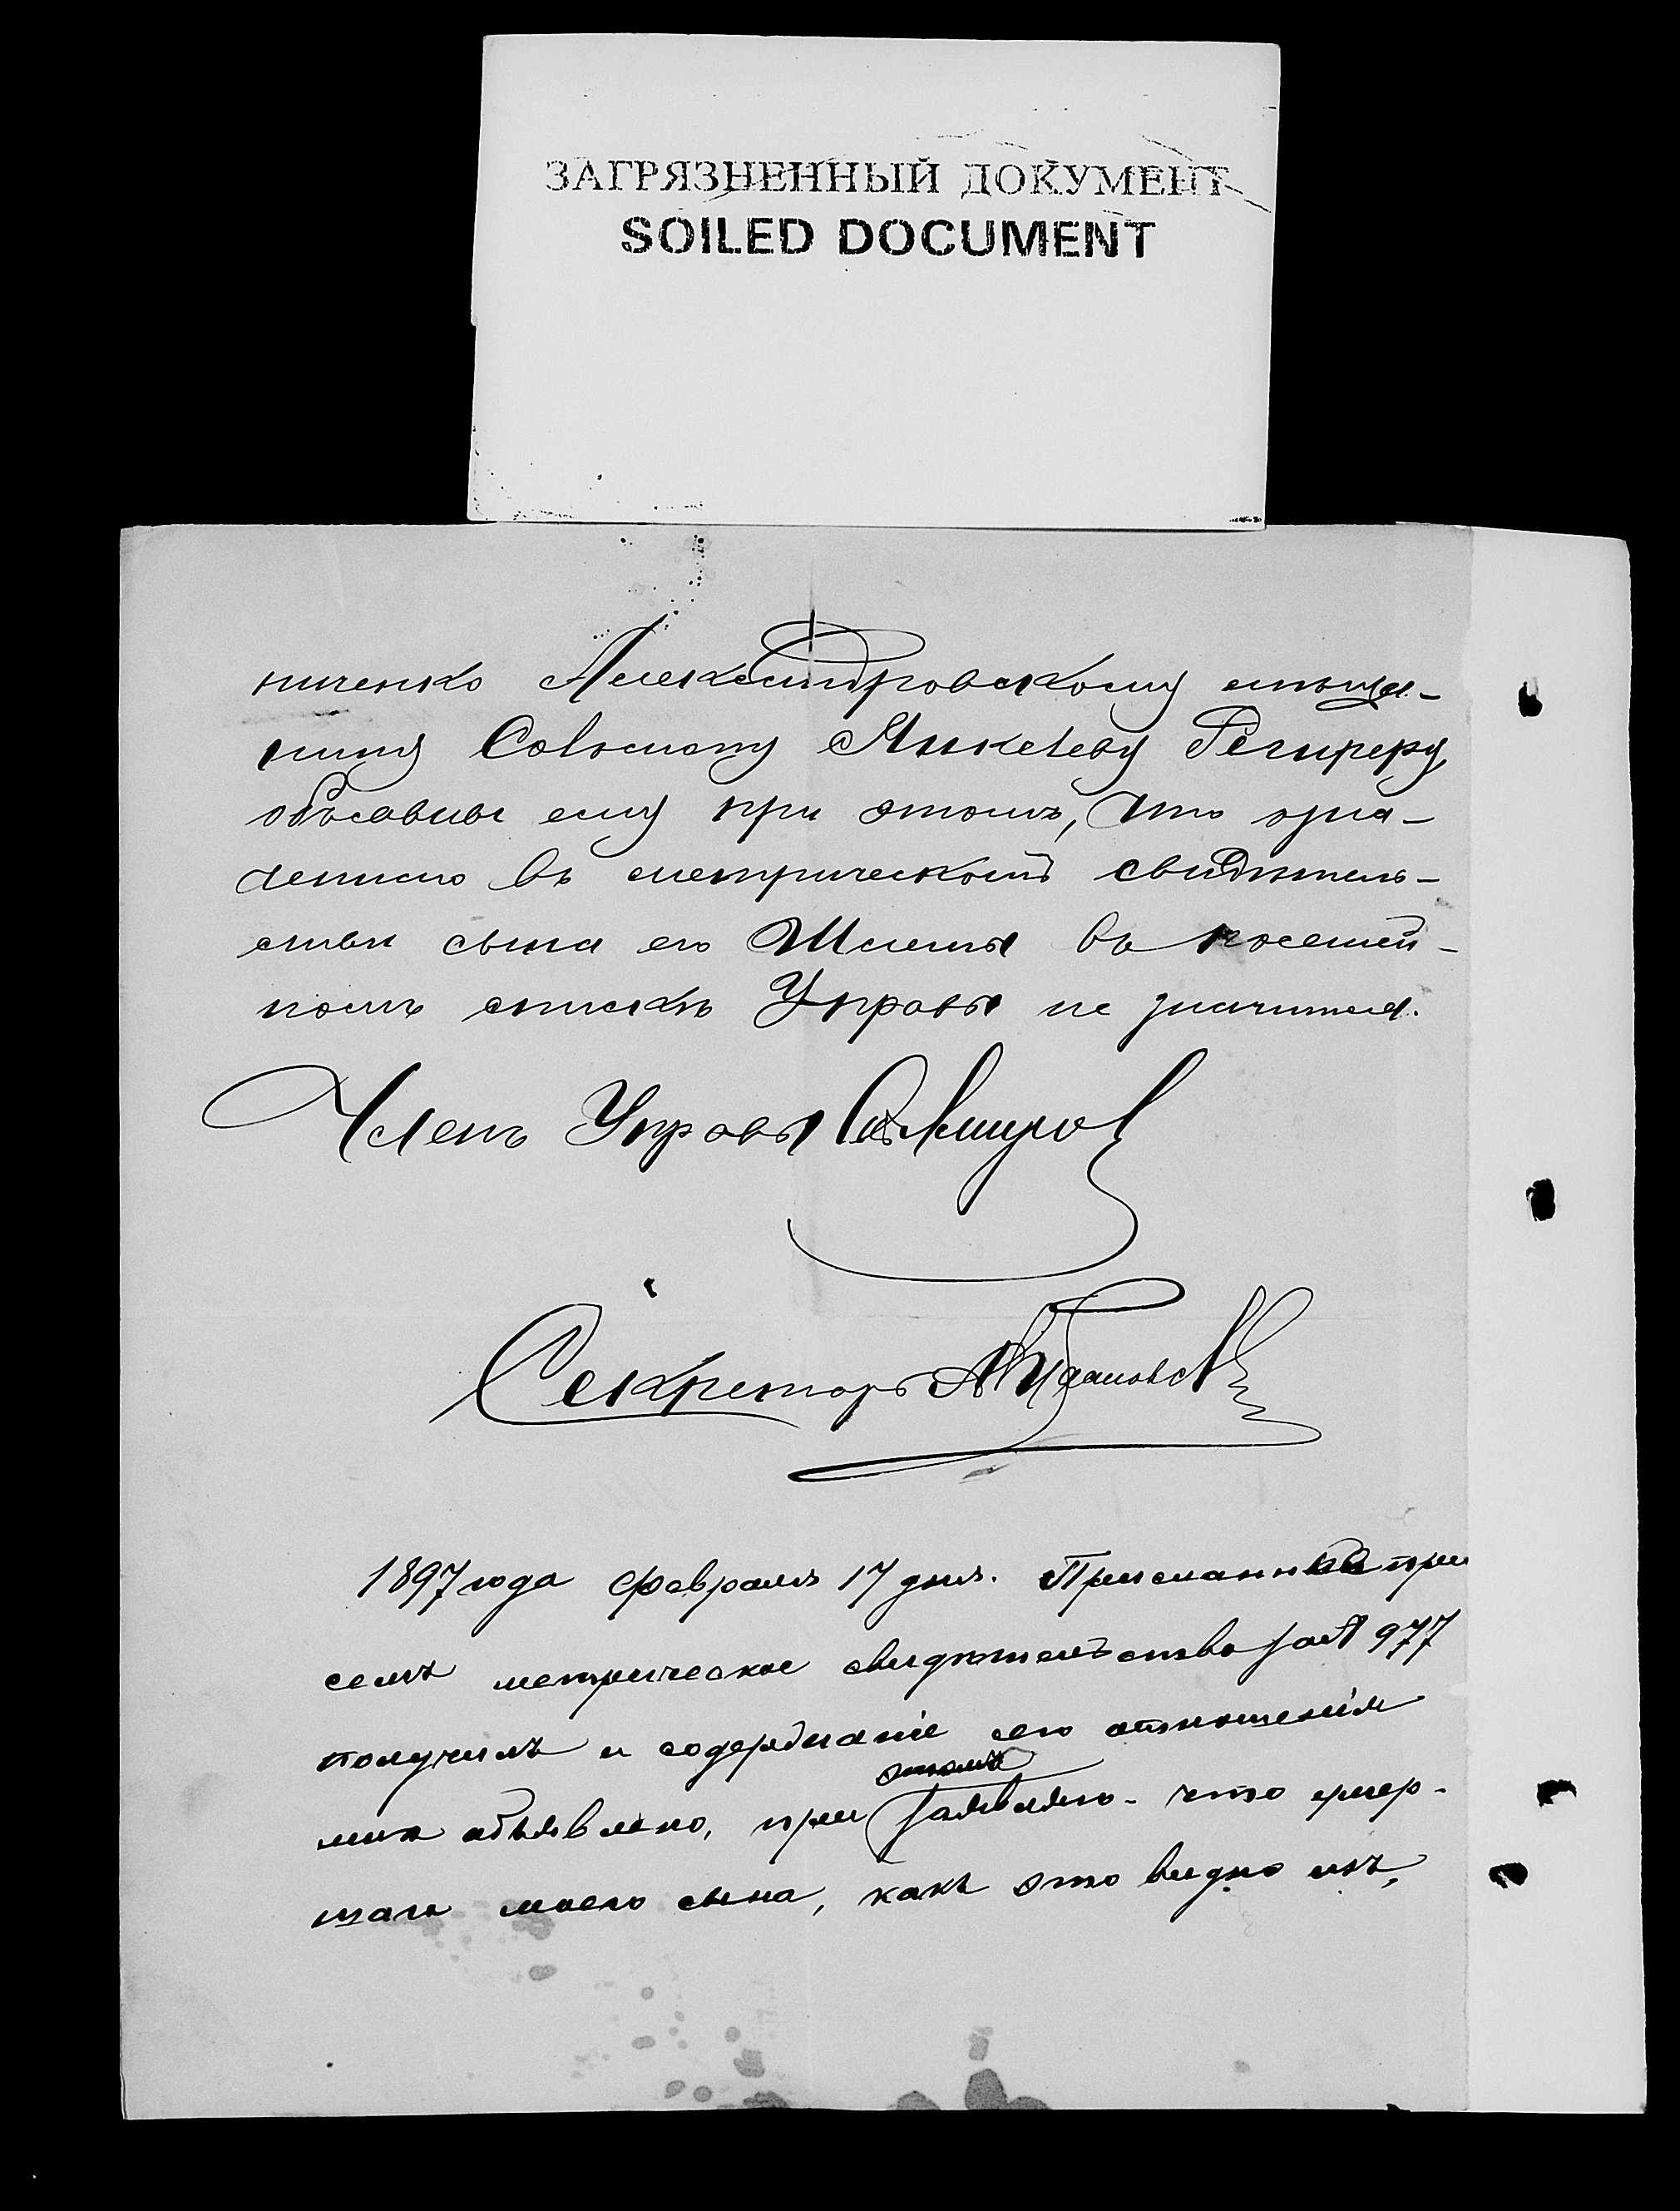 ЗАГРЯЗНЕННЫЙ ДОКУМЕНТ
SOILED DOCUMENT
Александровскому мѣща-
нину Янкелеву
объявивъ ему при этомъ, что
въ метрическомъ свидѣтель-
ствѣ сына его Шлемы въ посемей-
номъ спискѣ Управы не значится.
Членъ Управы
Секретарь
1897 года февраля 17 дня. при
семъ метрическое свидѣтельство за № 977
получилъ и содержаніе сего отношенія
этомъ
мнѣ объявлено, при заявляю что умер-
шаго моего сына, какъ это видно изъ